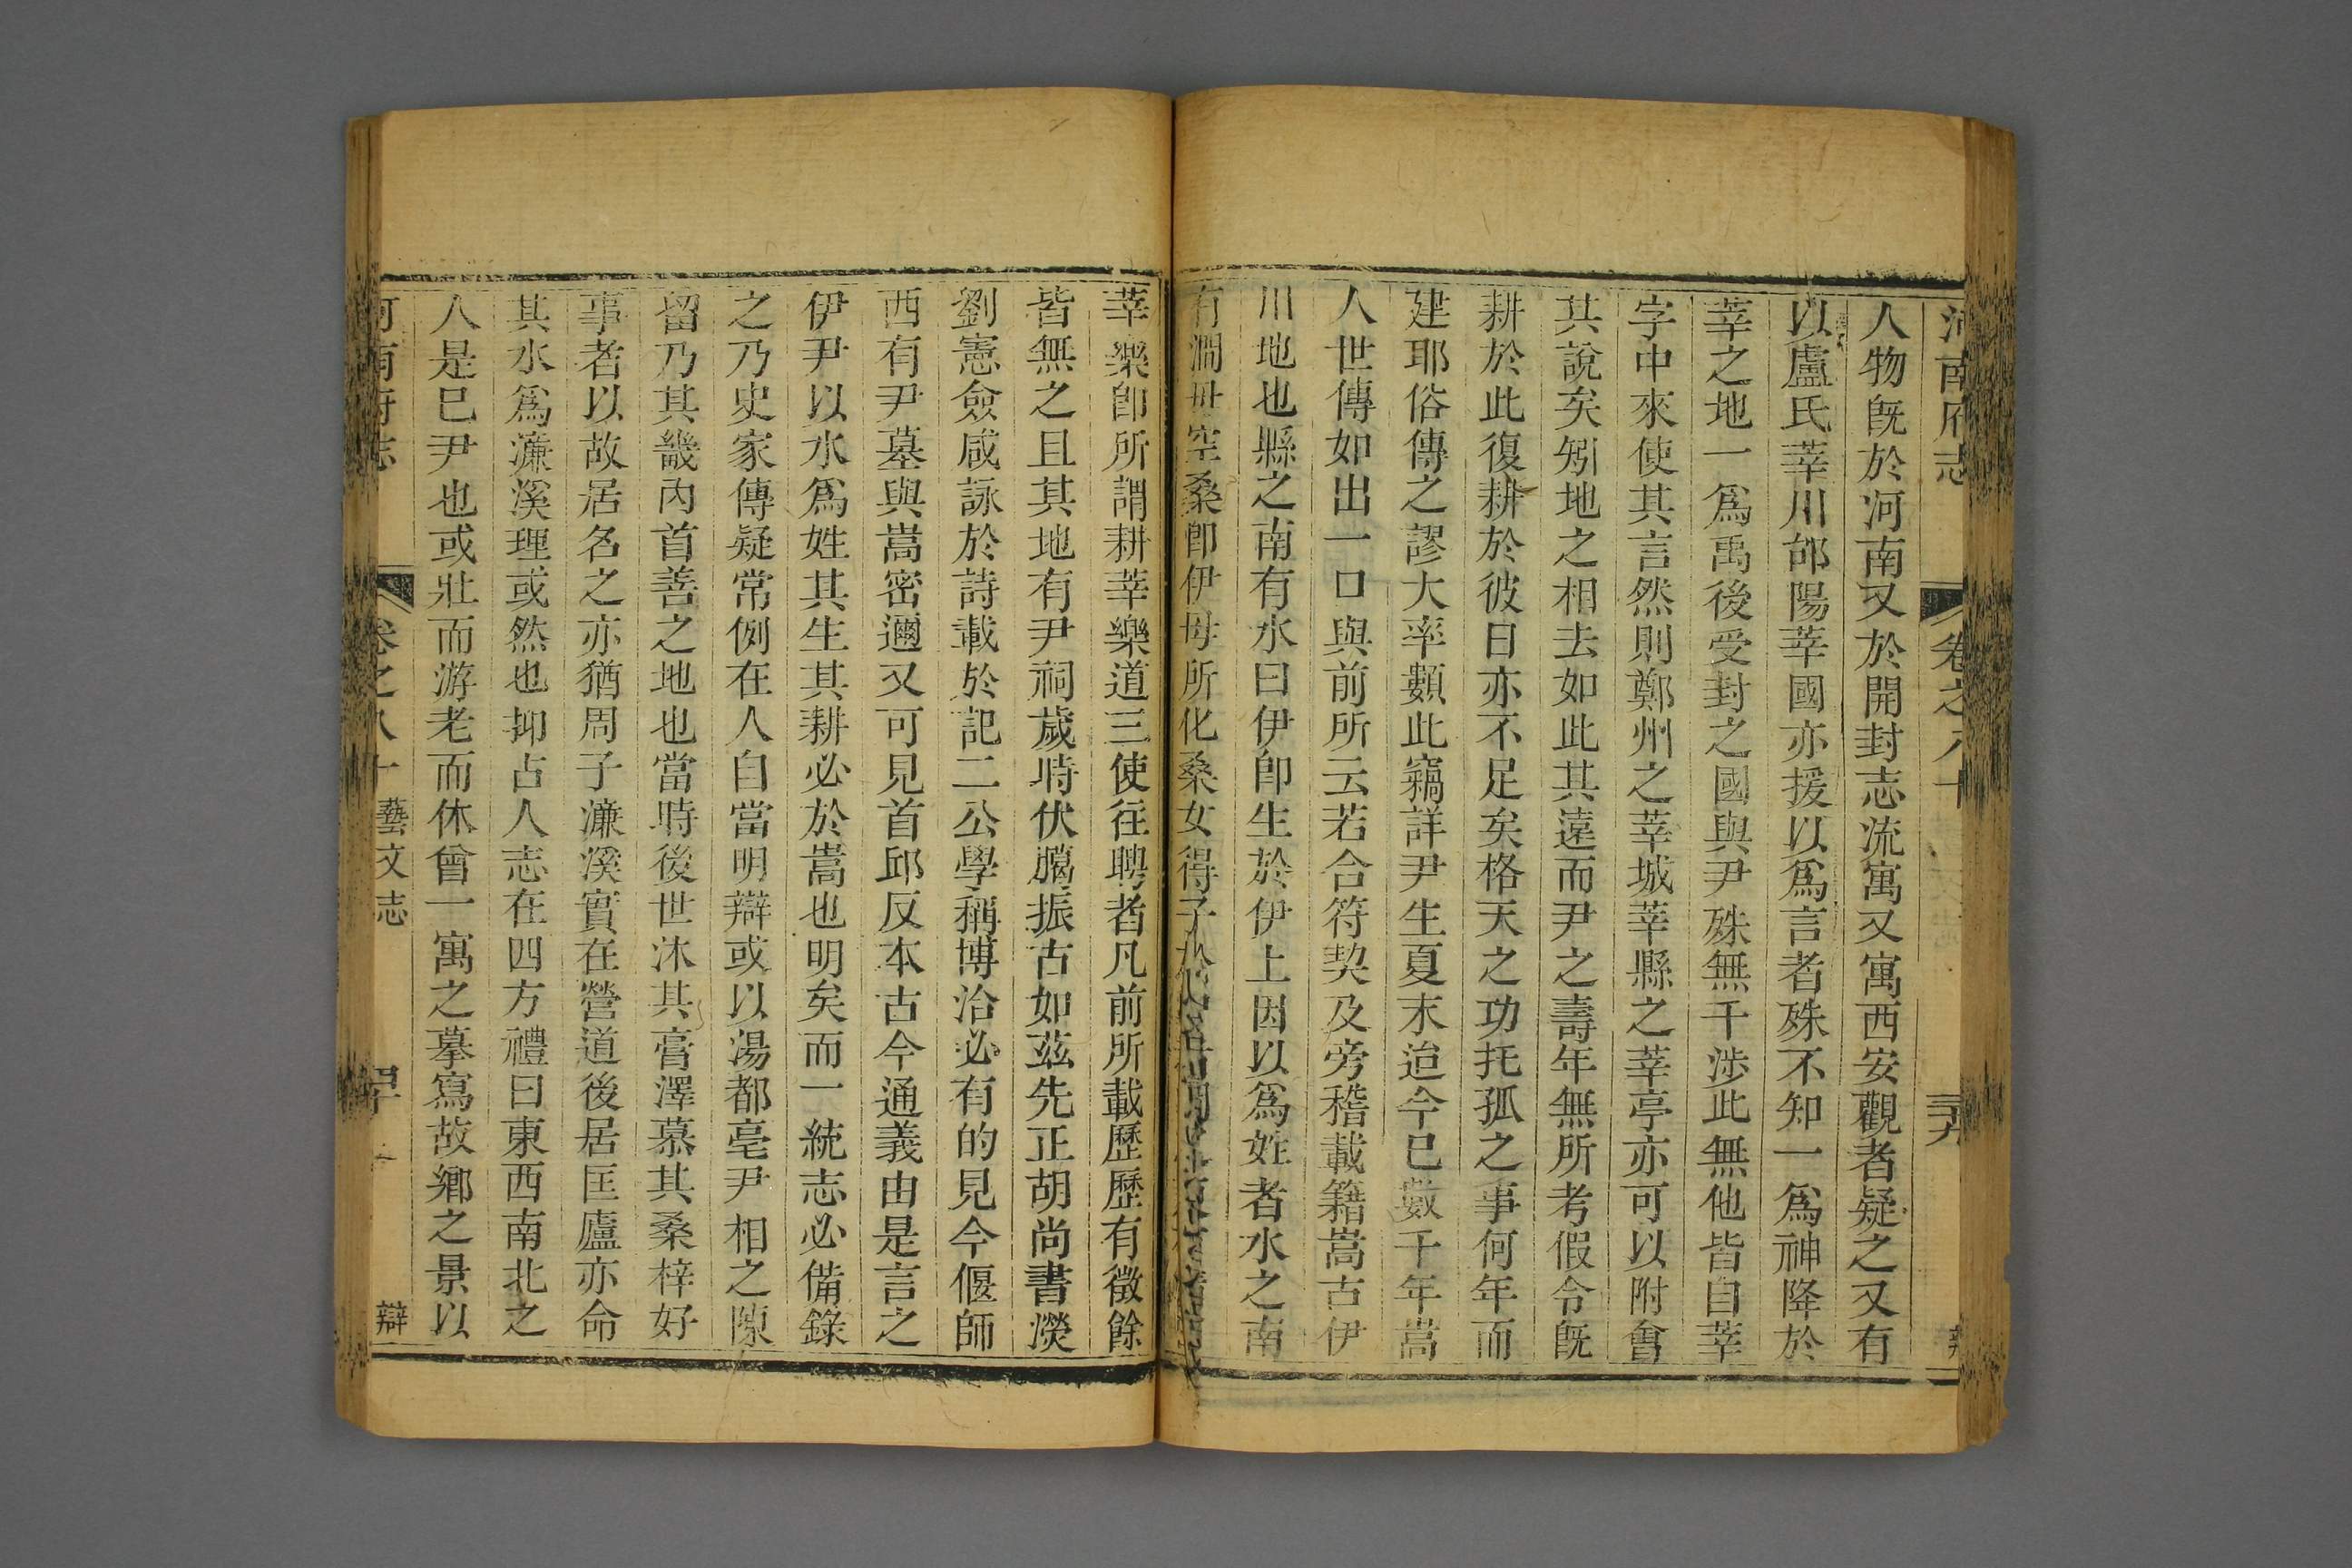 河南府志 卷之八十
人物旣於河南又於開封志流寓又寓西安觀者疑之又有
以盧氏莘川郃陽莘國亦援以爲言者殊不知一爲神降於
莘之地一爲禹後受封之國與尹殊無干涉此無他皆自莘
字中來使其言然則鄭州之莘城莘縣之莘亭亦可以附會
其說矣矧地之相去如此其遠而尹之壽年無所考假令旣
耕於此復耕於彼日亦不足矣格天之功托孤之事何年而
建耶俗傳之謬大率類此竊詳尹生夏末迨今已數千年嵩
人世傳如出一口與前所云若合符契及旁稽載籍嵩古伊
川地也縣之南有水曰伊卽生於伊上因以爲姓者水之南
有澗毋空桑卽伊母所化桑女得子
莘樂卽所謂耕莘樂道三使往聘者凡前所載歷歷有徵餘
皆無之且其地有尹祠歲時伏臈振古如茲先正胡尚書濙
劉憲僉咸詠於詩載於記二公學稱博洽必有的見今偃師
西有尹墓與嵩密邇又可見首邱反本古今通義由是言之
伊尹以水爲姓其生其耕必於嵩也明矣而一統志必備錄
之乃史家傳疑常例在人自當明辯或以湯都亳尹相之陳
留乃其畿內首善之地也當時後世沐其膏澤慕其桑梓好
事者以故居名之亦猶周子濂溪實在營道後居匡廬亦命
其水爲濂溪理或然也抑占人志在四方禮曰東西南北之
人是巳尹也或壯而游老而休曾一寓之摹寫故鄉之景以
河南府志 卷之八十 藝文志 辯